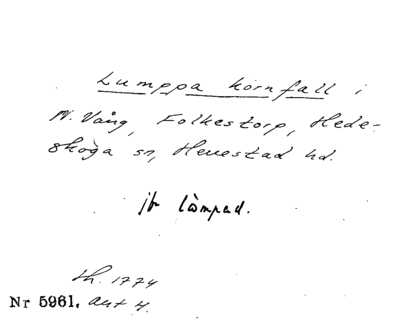 Lumppa kornfall i
N. Vång, Folkestorp, Hede-
skoga sn, Herrestad hd.
jfr lämpad.
lh. 1774
Nr 5961. akt 4.